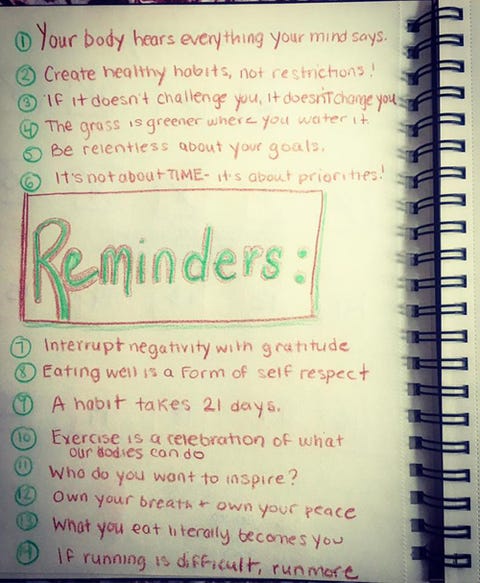 ① Your body hears everything your mind says.
② Create healthy habits, not restrictions!
③ If it doesn't challenge you, it doesn't change you
④ The grass is greener where you water it.
⑤ Be relentless about your goals.
⑥ It's not about TIME- it's about priorities!
Reminders:
⑦ Interrupt negativity with gratitude
⑧ Eating well is a form of self respect
⑨ A habit takes 21 days.
⑩ Exercise is a celebration of what
our bodies can do
⑪ Who do you want to inspire?
⑫ Own your breath + own your peace
⑬ What you eat literally becomes you
⑭ If running is difficult, run more